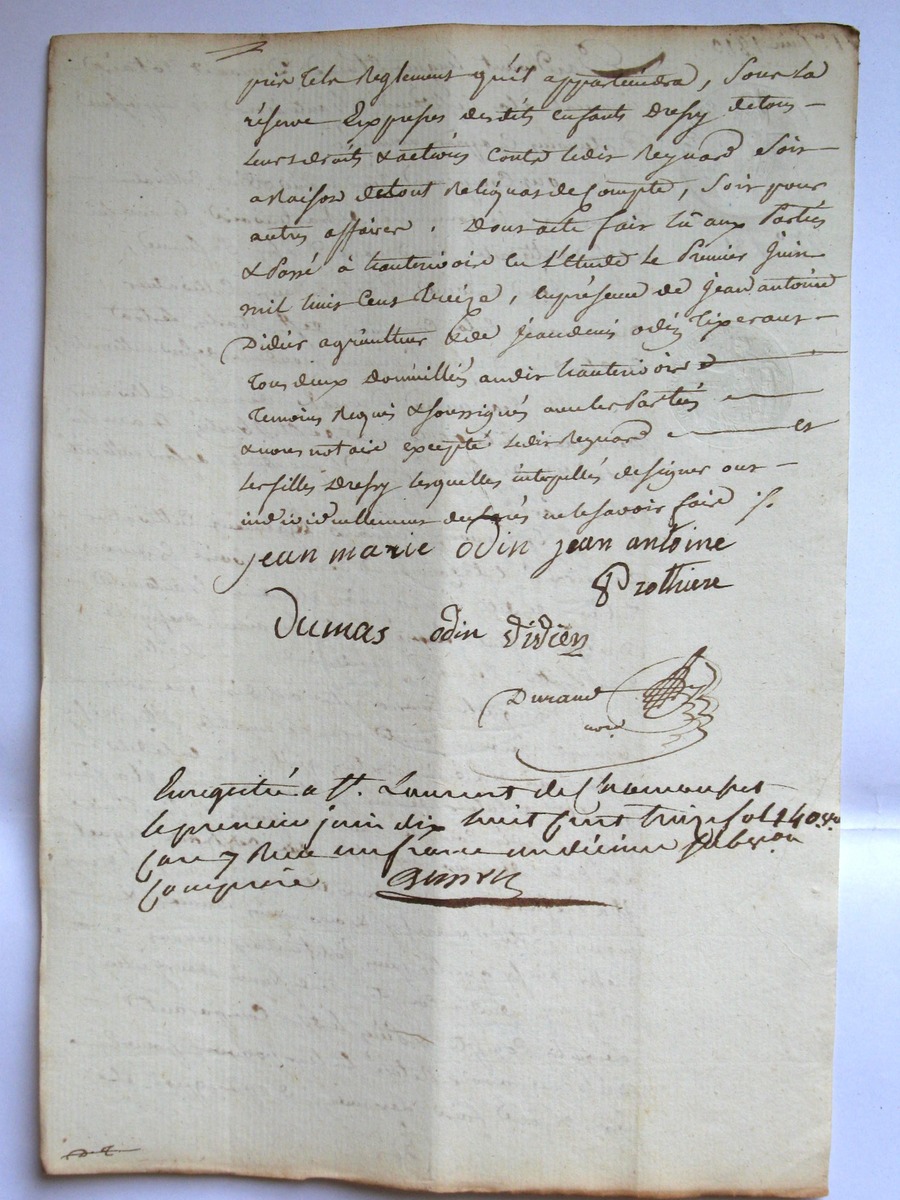 tels Reglement qu'il appartiendra, Sous La
réserve Expresse desdits enfants Dresy de tous
Leurs droits & actions contre ledit Reynard Soit
a Raison de tout Reliquat de Compte, Soit pour
autres affaires. Dont acte fait lû aux Parties
& Passé à hauterivoire en L'Etude Le Premier Juin
mil huit Cent treize, en présence de Jean antoine
Didier agriculteur & de Jean denis odin Tixerant
Tous deux Domiciliés audit hauterivoire
Temoins Requis & soussignés avec les Parties
& nous notaire excepté ledit Reynard et
les filles Dresy lesquelles interpellés de signer ont
individuellement déclarés ne le savoir faire
jean marie odin jean antoine
Prothiere
Dumas odin didier
Durand
not.
Enregistré a St. Laurent de Chamousset
le premier juin dix huit cent treize fol 140
Case 7 Reçu un franc un décime
Comprise